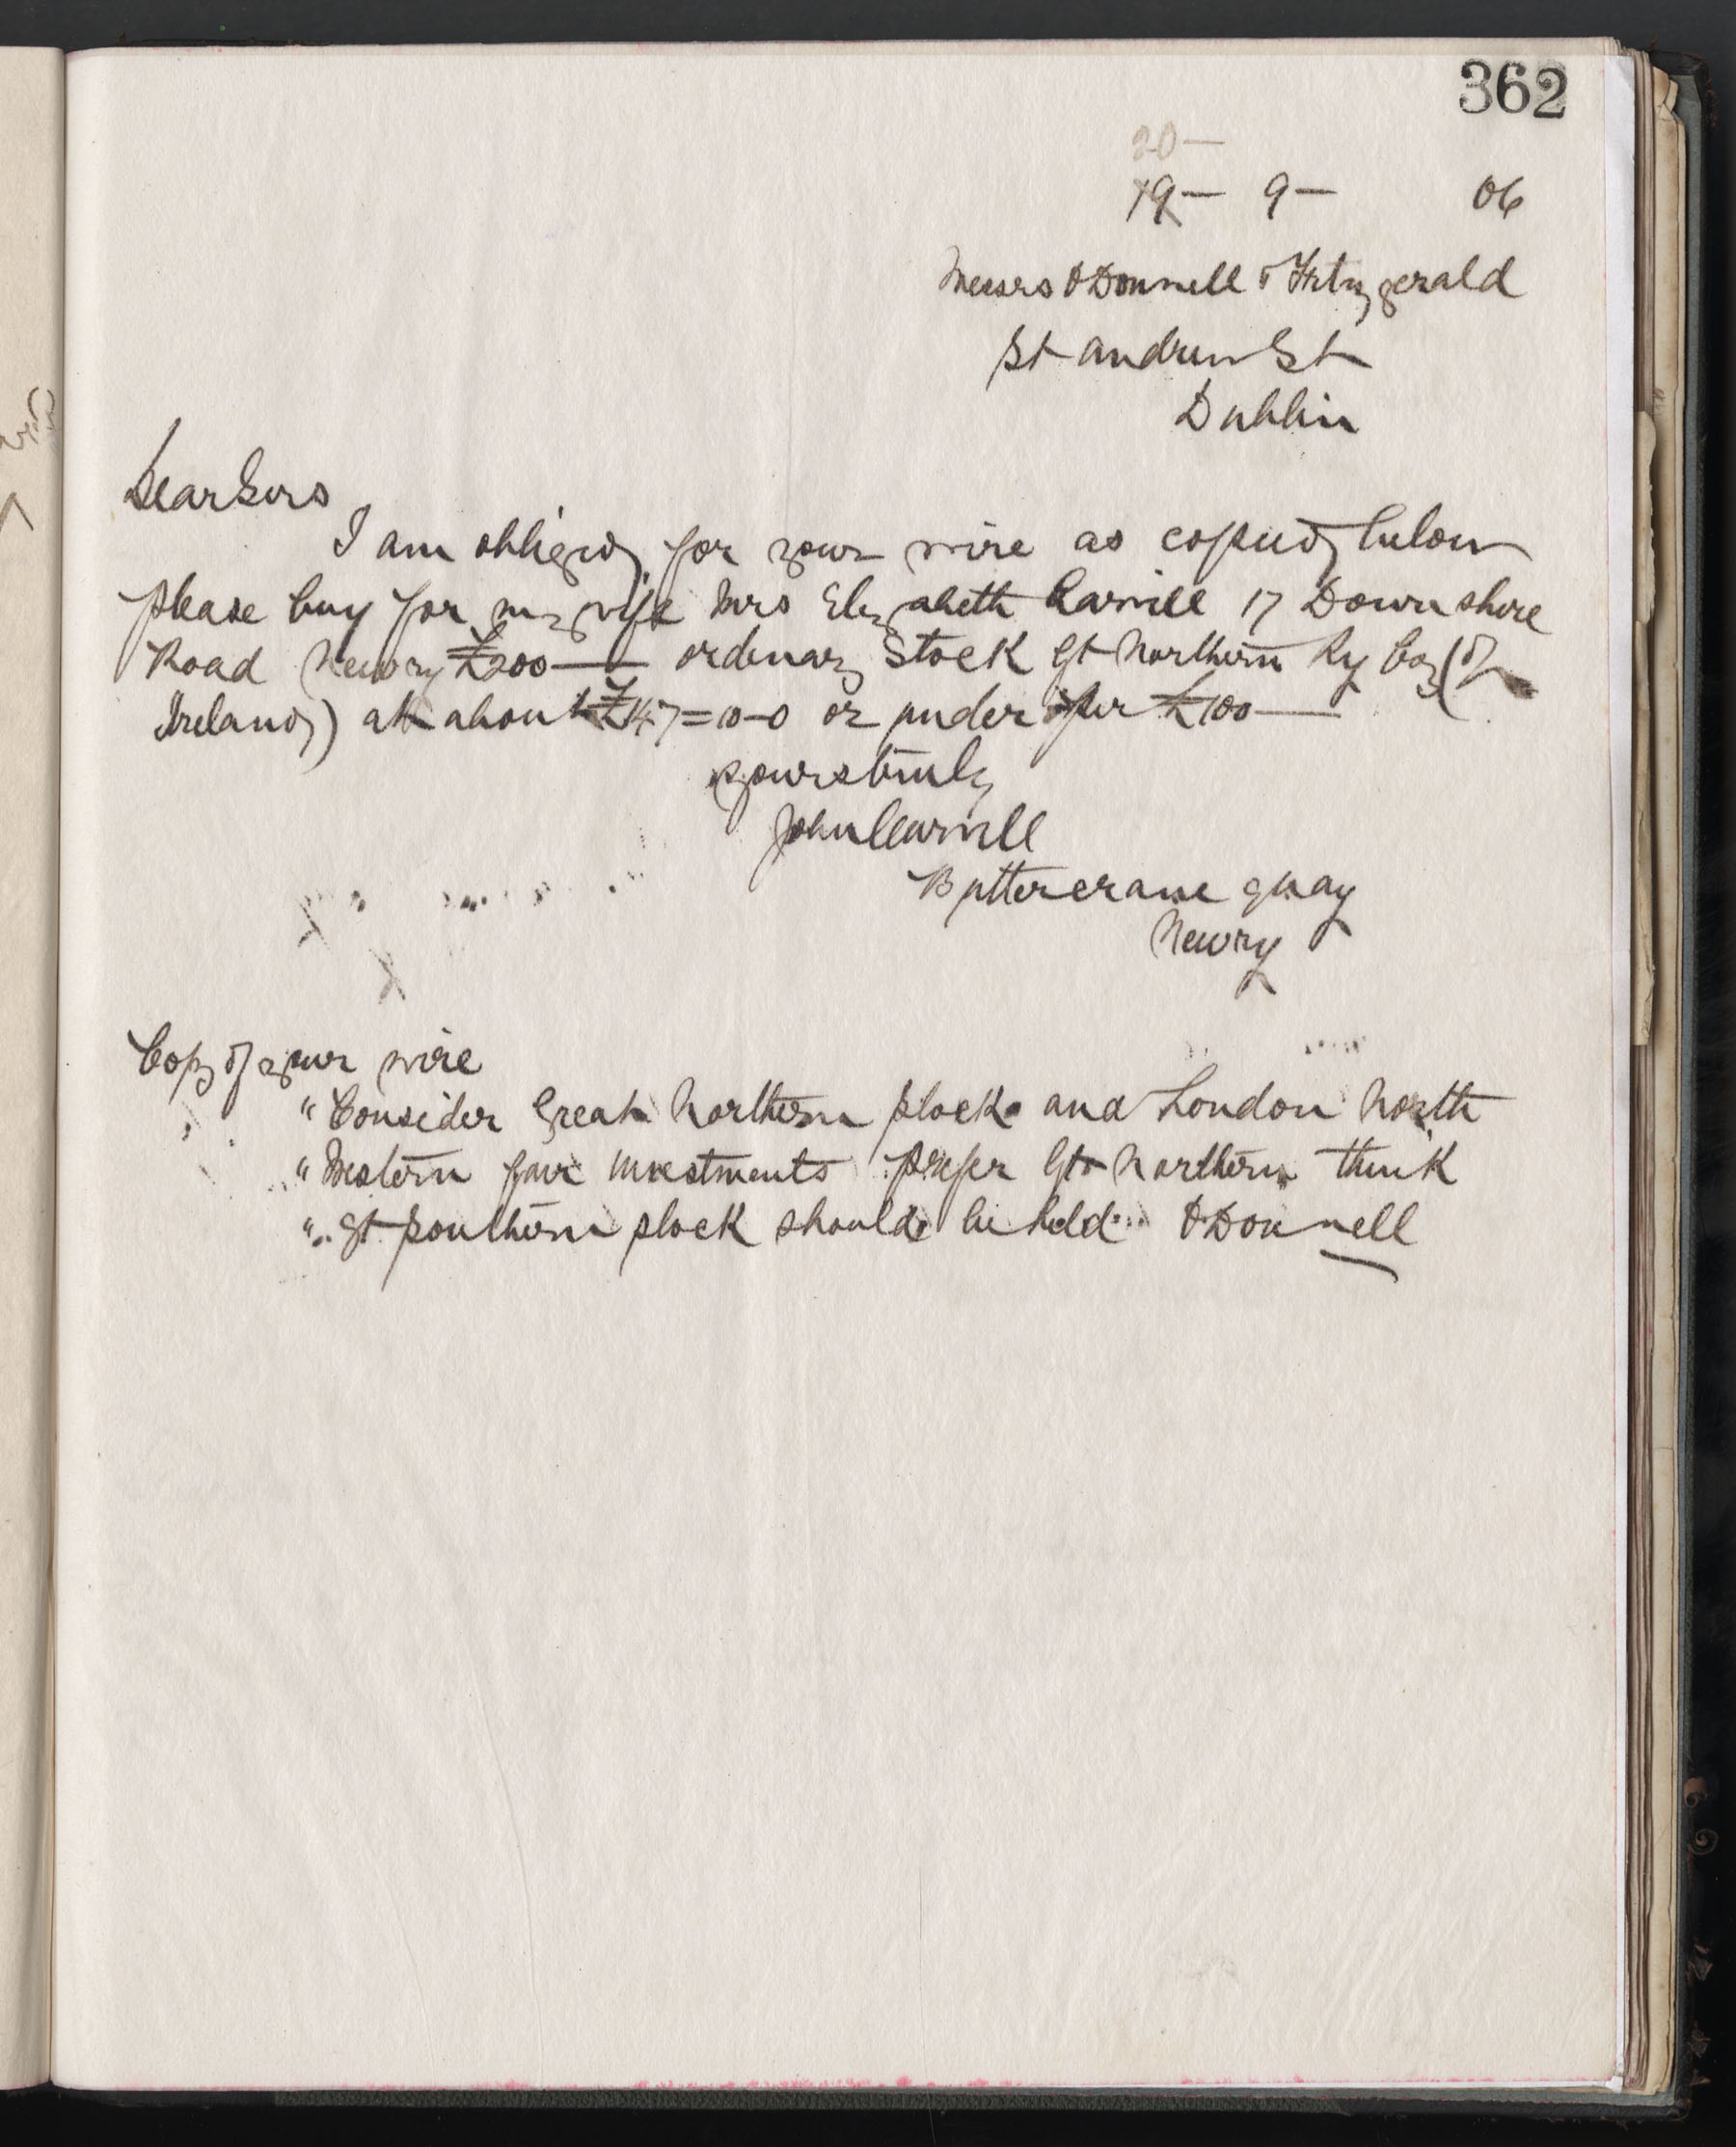 362
20—
19— 9— 06
Messrs O'Donnell & Fitzgerald
St Andrew St
Dublin
Dear Sirs
I am obliged for your wire as copied below
please buy for my wife Mrs Elizabeth Carvill 17 Downshire
Road Newry £200— ordinary Stock Gt Northern Ry Coy (of
Ireland) at about £147=10-0 or under per £100—
Yours truly
John Carvill
Buttercrane Quay
Newry
Copy of your wire
"Consider Great Northern stock and London North
"Western fair investments prefer Gt Northern think
" Gt Southern stock should be held O'Donnell